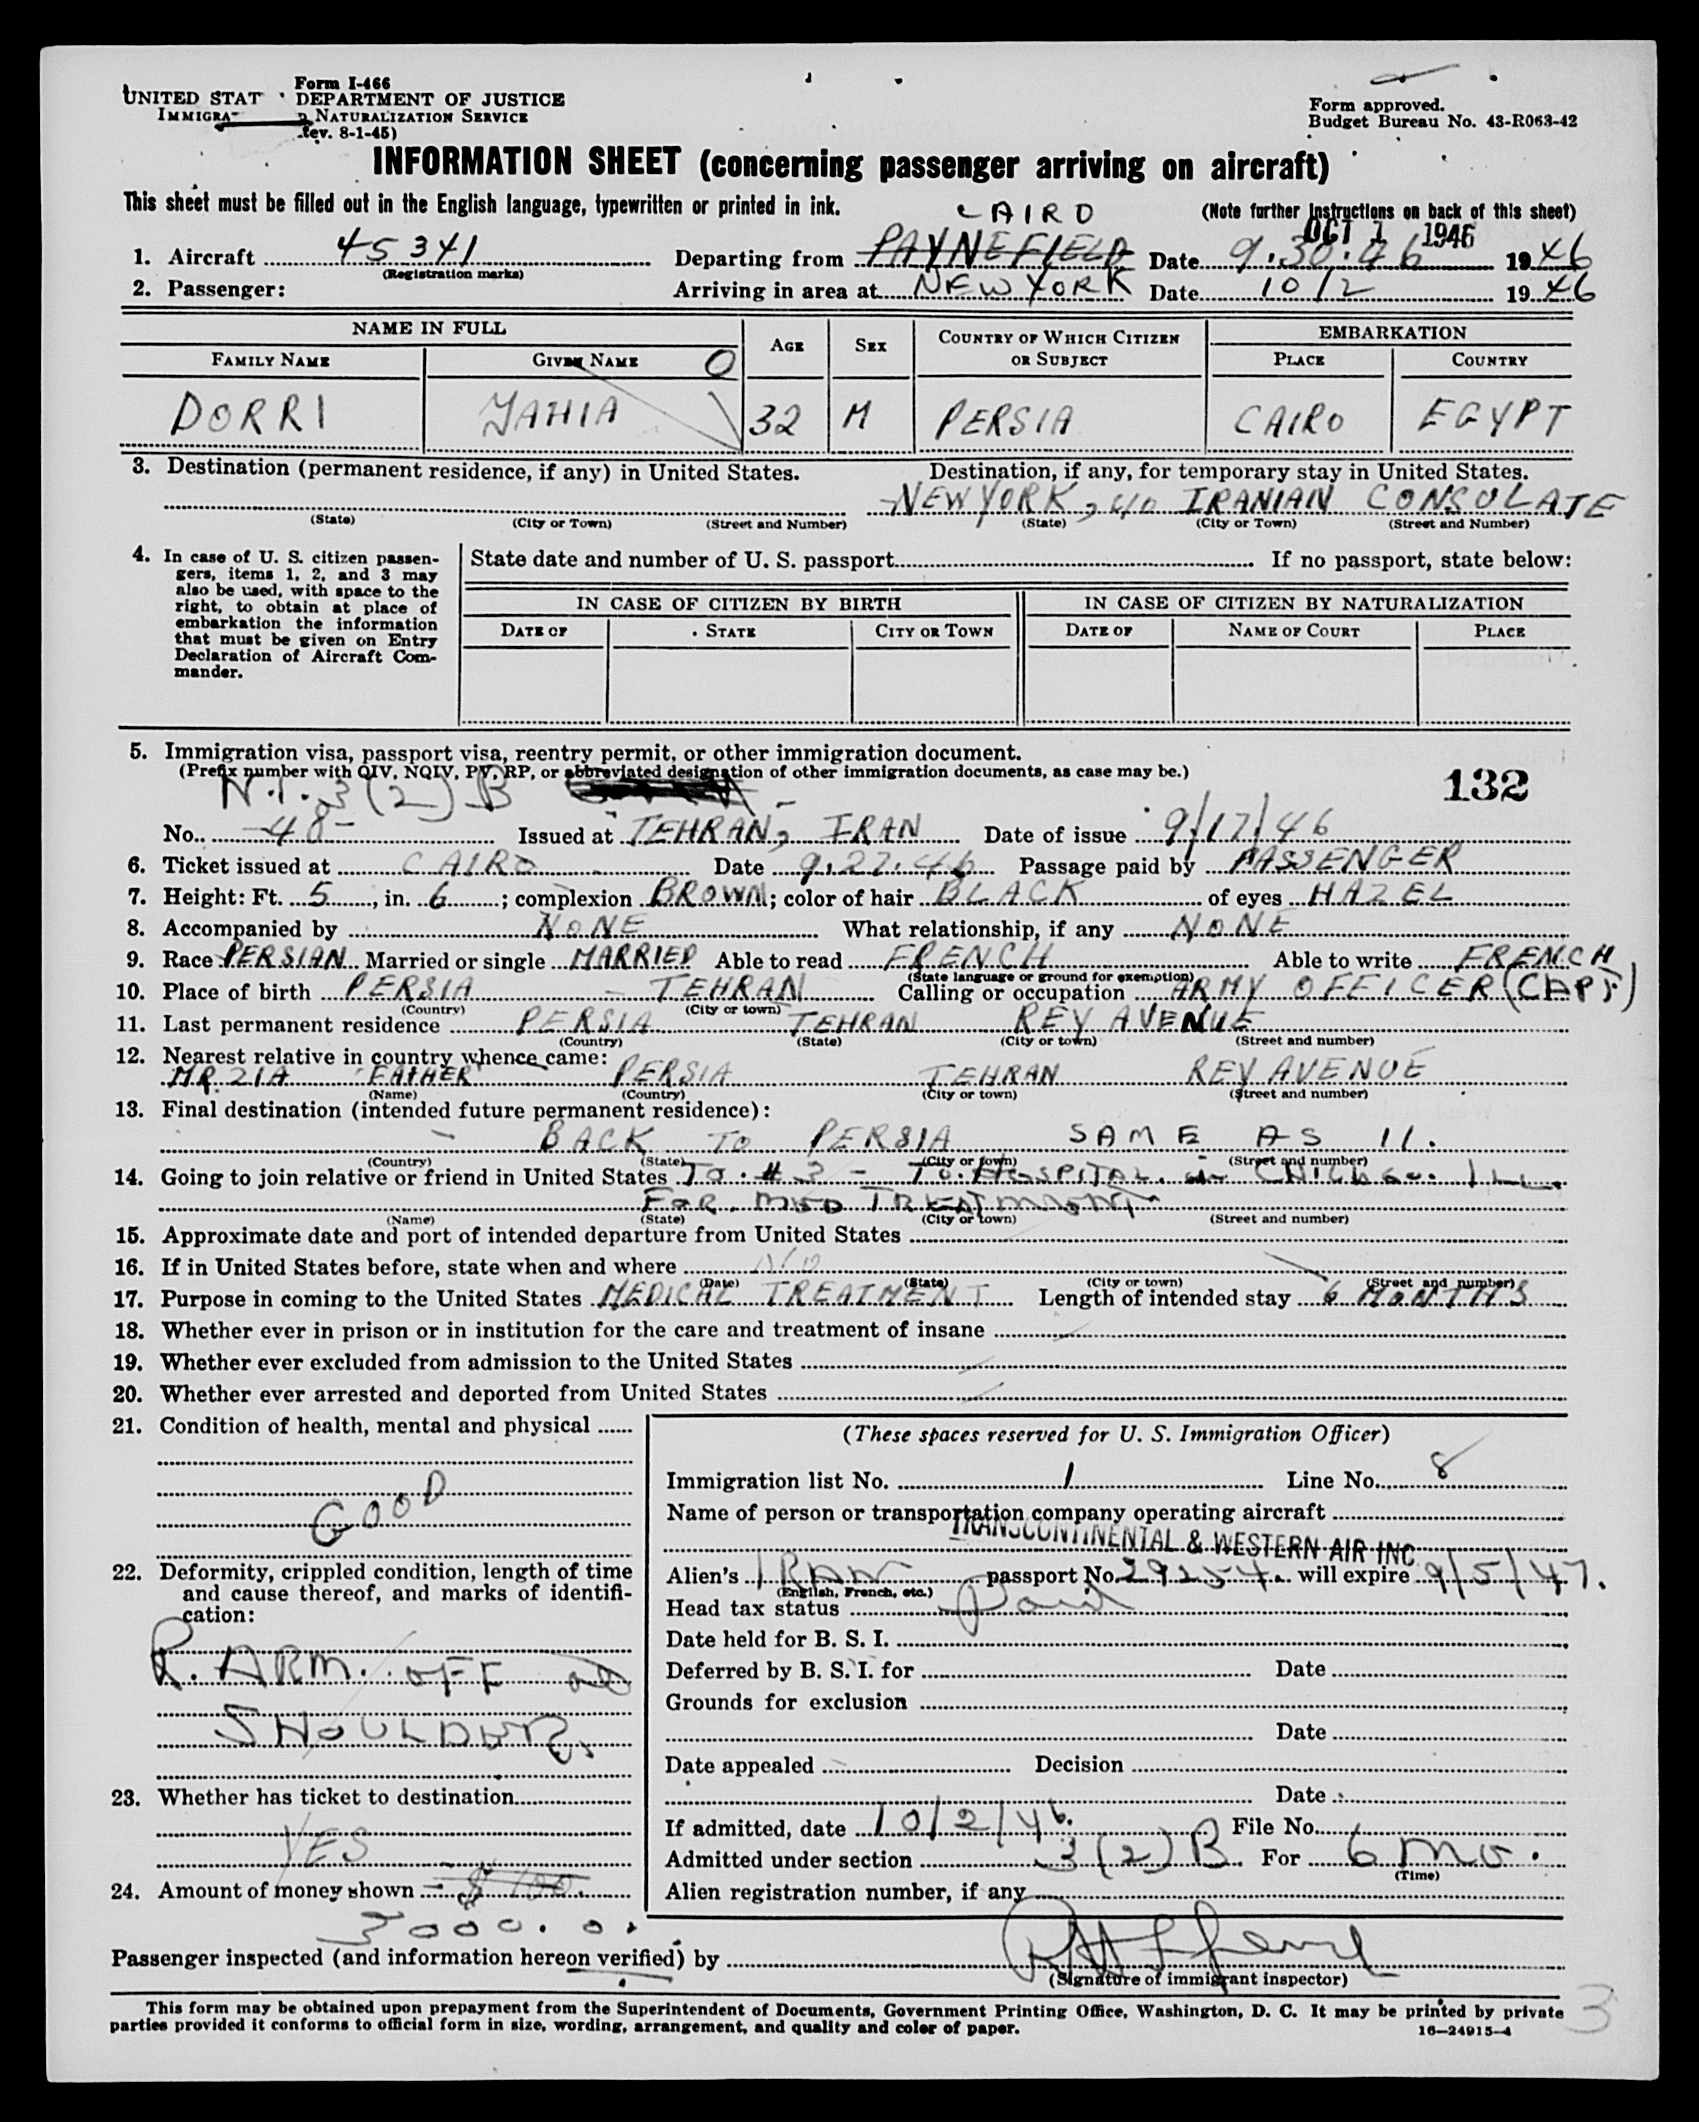 Form I-466
UNITED STAT DEPARTMENT OF JUSTICE
IMMIGRA NATURALIZATION SERVICE
ev. 8-1-45)
Form approved.
Budget Bureau No. 43-R063-42
INFORMATION SHEET (concerning passenger arriving on aircraft)
This sheet must be filled out in the English language, typewritten or printed in ink.
(Note further instructions on back of this sheet)
CAIRO
OCT 1 1946
1. Aircraft 45341 Departing from PAYNEFIELD Date 9.30.46 1946
(Registration marks)
2. Passenger: Arriving in area at NEW YORK Date 10/2 1946
NAME IN FULL AGE SEX COUNTRY OF WHICH CITIZEN OR SUBJECT EMBARKATION
FAMILY NAME GIVEN NAME O PLACE COUNTRY
DORRI YAHIA 32 M PERSIA CAIRO EGYPT
3. Destination (permanent residence, if any) in United States. Destination, if any, for temporary stay in United States.
NEW YORK, c/o IRANIAN CONSULATE
(State) (City or Town) (Street and Number) (State) (City or Town) (Street and Number)
4. In case of U. S. citizen passen-
gers, items 1, 2, and 3 may
also be used, with space to the
right, to obtain at place of
embarkation the information
that must be given on Entry
Declaration of Aircraft Com-
mander.
State date and number of U. S. passport If no passport, state below:
IN CASE OF CITIZEN BY BIRTH IN CASE OF CITIZEN BY NATURALIZATION
DATE OF STATE CITY OR TOWN DATE OF NAME OF COURT PLACE
5. Immigration visa, passport visa, reentry permit, or other immigration document.
(Prefix number with QIV, NQIV, PV, RP, or abbreviated designation of other immigration documents, as case may be.)
132
N.I. 3(2)B
No. -48- Issued at TEHRAN, IRAN Date of issue 9/17/46
6. Ticket issued at CAIRO Date 9.27.46 Passage paid by PASSENGER
7. Height: Ft. 5, in. 6; complexion BROWN; color of hair BLACK of eyes HAZEL
8. Accompanied by NONE What relationship, if any NONE
9. Race PERSIAN Married or single MARRIED Able to read FRENCH Able to write FRENCH
(State language or ground for exemption)
10. Place of birth PERSIA - TEHRAN Calling or occupation ARMY OFFICER (CAPT)
(Country) (City or town)
11. Last permanent residence PERSIA TEHRAN REY AVENUE
(Country) (State) (City or town) (Street and number)
12. Nearest relative in country whence came:
MR. ZIA "FATHER" PERSIA TEHRAN REY AVENUE
(Name) (Country) (City or town) (Street and number)
13. Final destination (intended future permanent residence):
BACK TO PERSIA SAME AS 11.
(Country) (State) (City or town) (Street and number)
14. Going to join relative or friend in United States TO #3 - TO HOSPITAL in CHICAGO. ILL.
FOR MED TREATMENT
(Name) (State) (City or town) (Street and number)
15. Approximate date and port of intended departure from United States
16. If in United States before, state when and where NO
(Date) (State) (City or town) (Street and number)
17. Purpose in coming to the United States MEDICAL TREATMENT Length of intended stay 6 MONTHS
18. Whether ever in prison or in institution for the care and treatment of insane
19. Whether ever excluded from admission to the United States
20. Whether ever arrested and deported from United States
21. Condition of health, mental and physical
GOOD
22. Deformity, crippled condition, length of time
and cause thereof, and marks of identifi-
cation:
R. ARM. OFF
SHOULDER.
23. Whether has ticket to destination
YES
24. Amount of money shown $100.
3000.0.
(These spaces reserved for U. S. Immigration Officer)
Immigration list No. 1 Line No. 8
Name of person or transportation company operating aircraft
TRANSCONTINENTAL & WESTERN AIR INC
Alien's IRAN passport No. 29254 will expire 9/5/47.
(English, French, etc.)
Head tax status Paid
Date held for B. S. I.
Deferred by B. S. I. for Date
Grounds for exclusion
Date
Date appealed Decision
Date
If admitted, date 10/2/46. File No.
Admitted under section 3(2)B For 6 mo.
(Time)
Alien registration number, if any
Passenger inspected (and information hereon verified) by
(Signature of immigrant inspector)
This form may be obtained upon prepayment from the Superintendent of Documents, Government Printing Office, Washington, D. C. It may be printed by private
parties provided it conforms to official form in size, wording, arrangement, and quality and color of paper.
16—24915-4
3